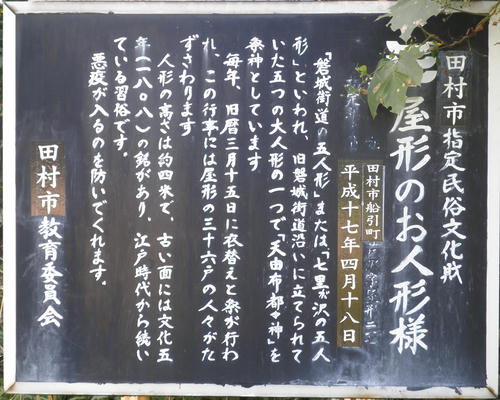 田村市指定民俗文化財
屋形のお人形様
田村市船引町
平成十七年四月十八日
「磐城街道の五人形」または「七里ヶ沢の五人
形」といわれ、旧磐城街道沿いに立てられて
いた五つの大人形の一つで「天由布都々神」を
祭神としています
毎年、旧暦三月十五日に衣替えと祭が行わ
れ、この行事には屋形の三十六戸の人々がた
ずさわります
人形の高さは約四米で、古い面には文化五
年(一八〇八)の銘があり、江戸時代から続い
ている習俗です。
悪疫が入るのを防いでくれます。
田村市教育委員会